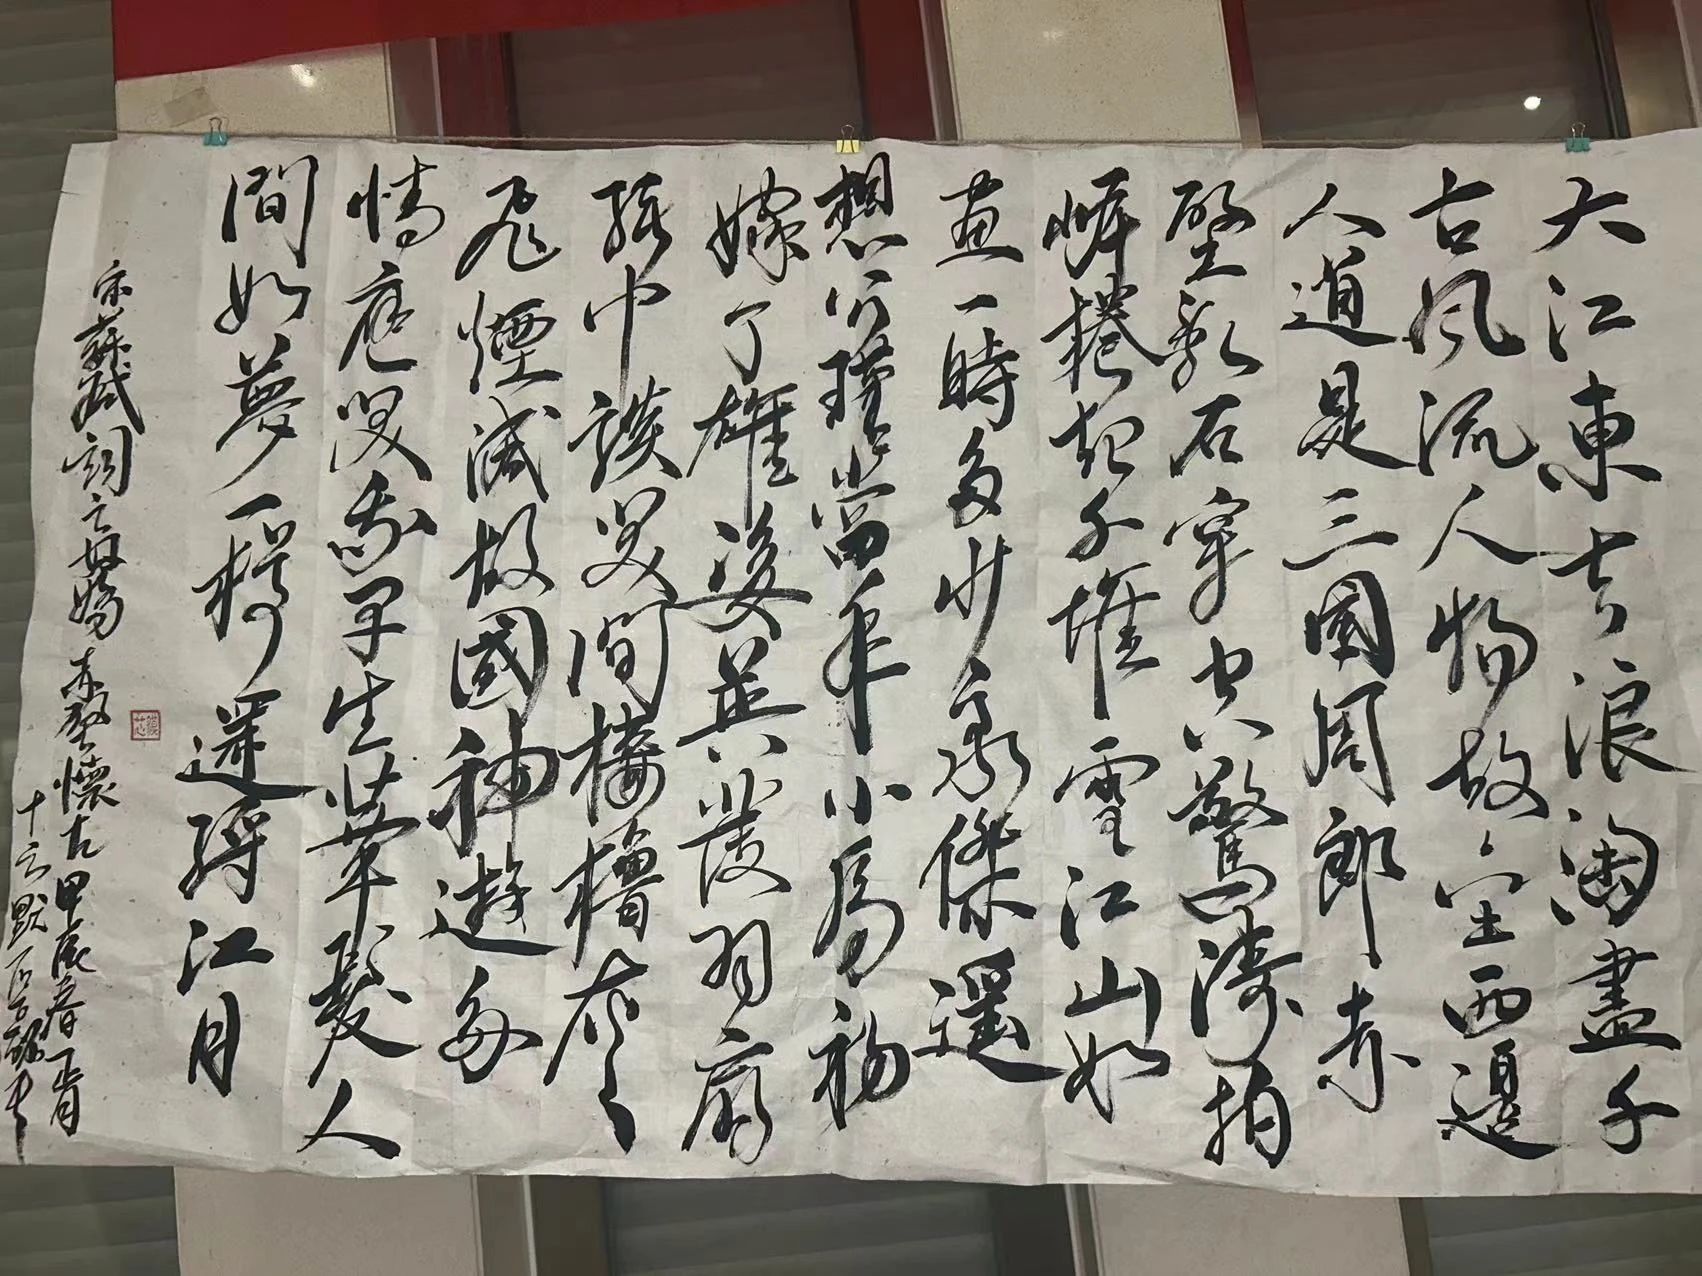 大江東去浪淘盡千
古風流人物故壘西邊
人道是三國周郎赤
壁亂石穿空驚濤拍
岸捲起千堆雪江山如
畫一時多少豪傑遥
想公瑾當年小喬初
嫁了雄姿英發羽扇
綸巾談笑間檣櫓灰
飛煙滅故國神遊多
情應笑我早生華髮人
間如夢一樽還酹江月
宋蘇軾詞念奴嬌赤壁懷古甲辰春